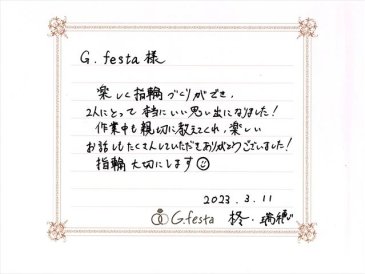 G.festa 様
楽しく指輪づくりができ、
2人にとって本当にいい思い出になりました！
作業中も親切に教えてくれ、楽しい
お話しもたくさんしていただきありがとうございました！
指輪大切にします☺
2023.3.11
G.festa 柊・瑞穂